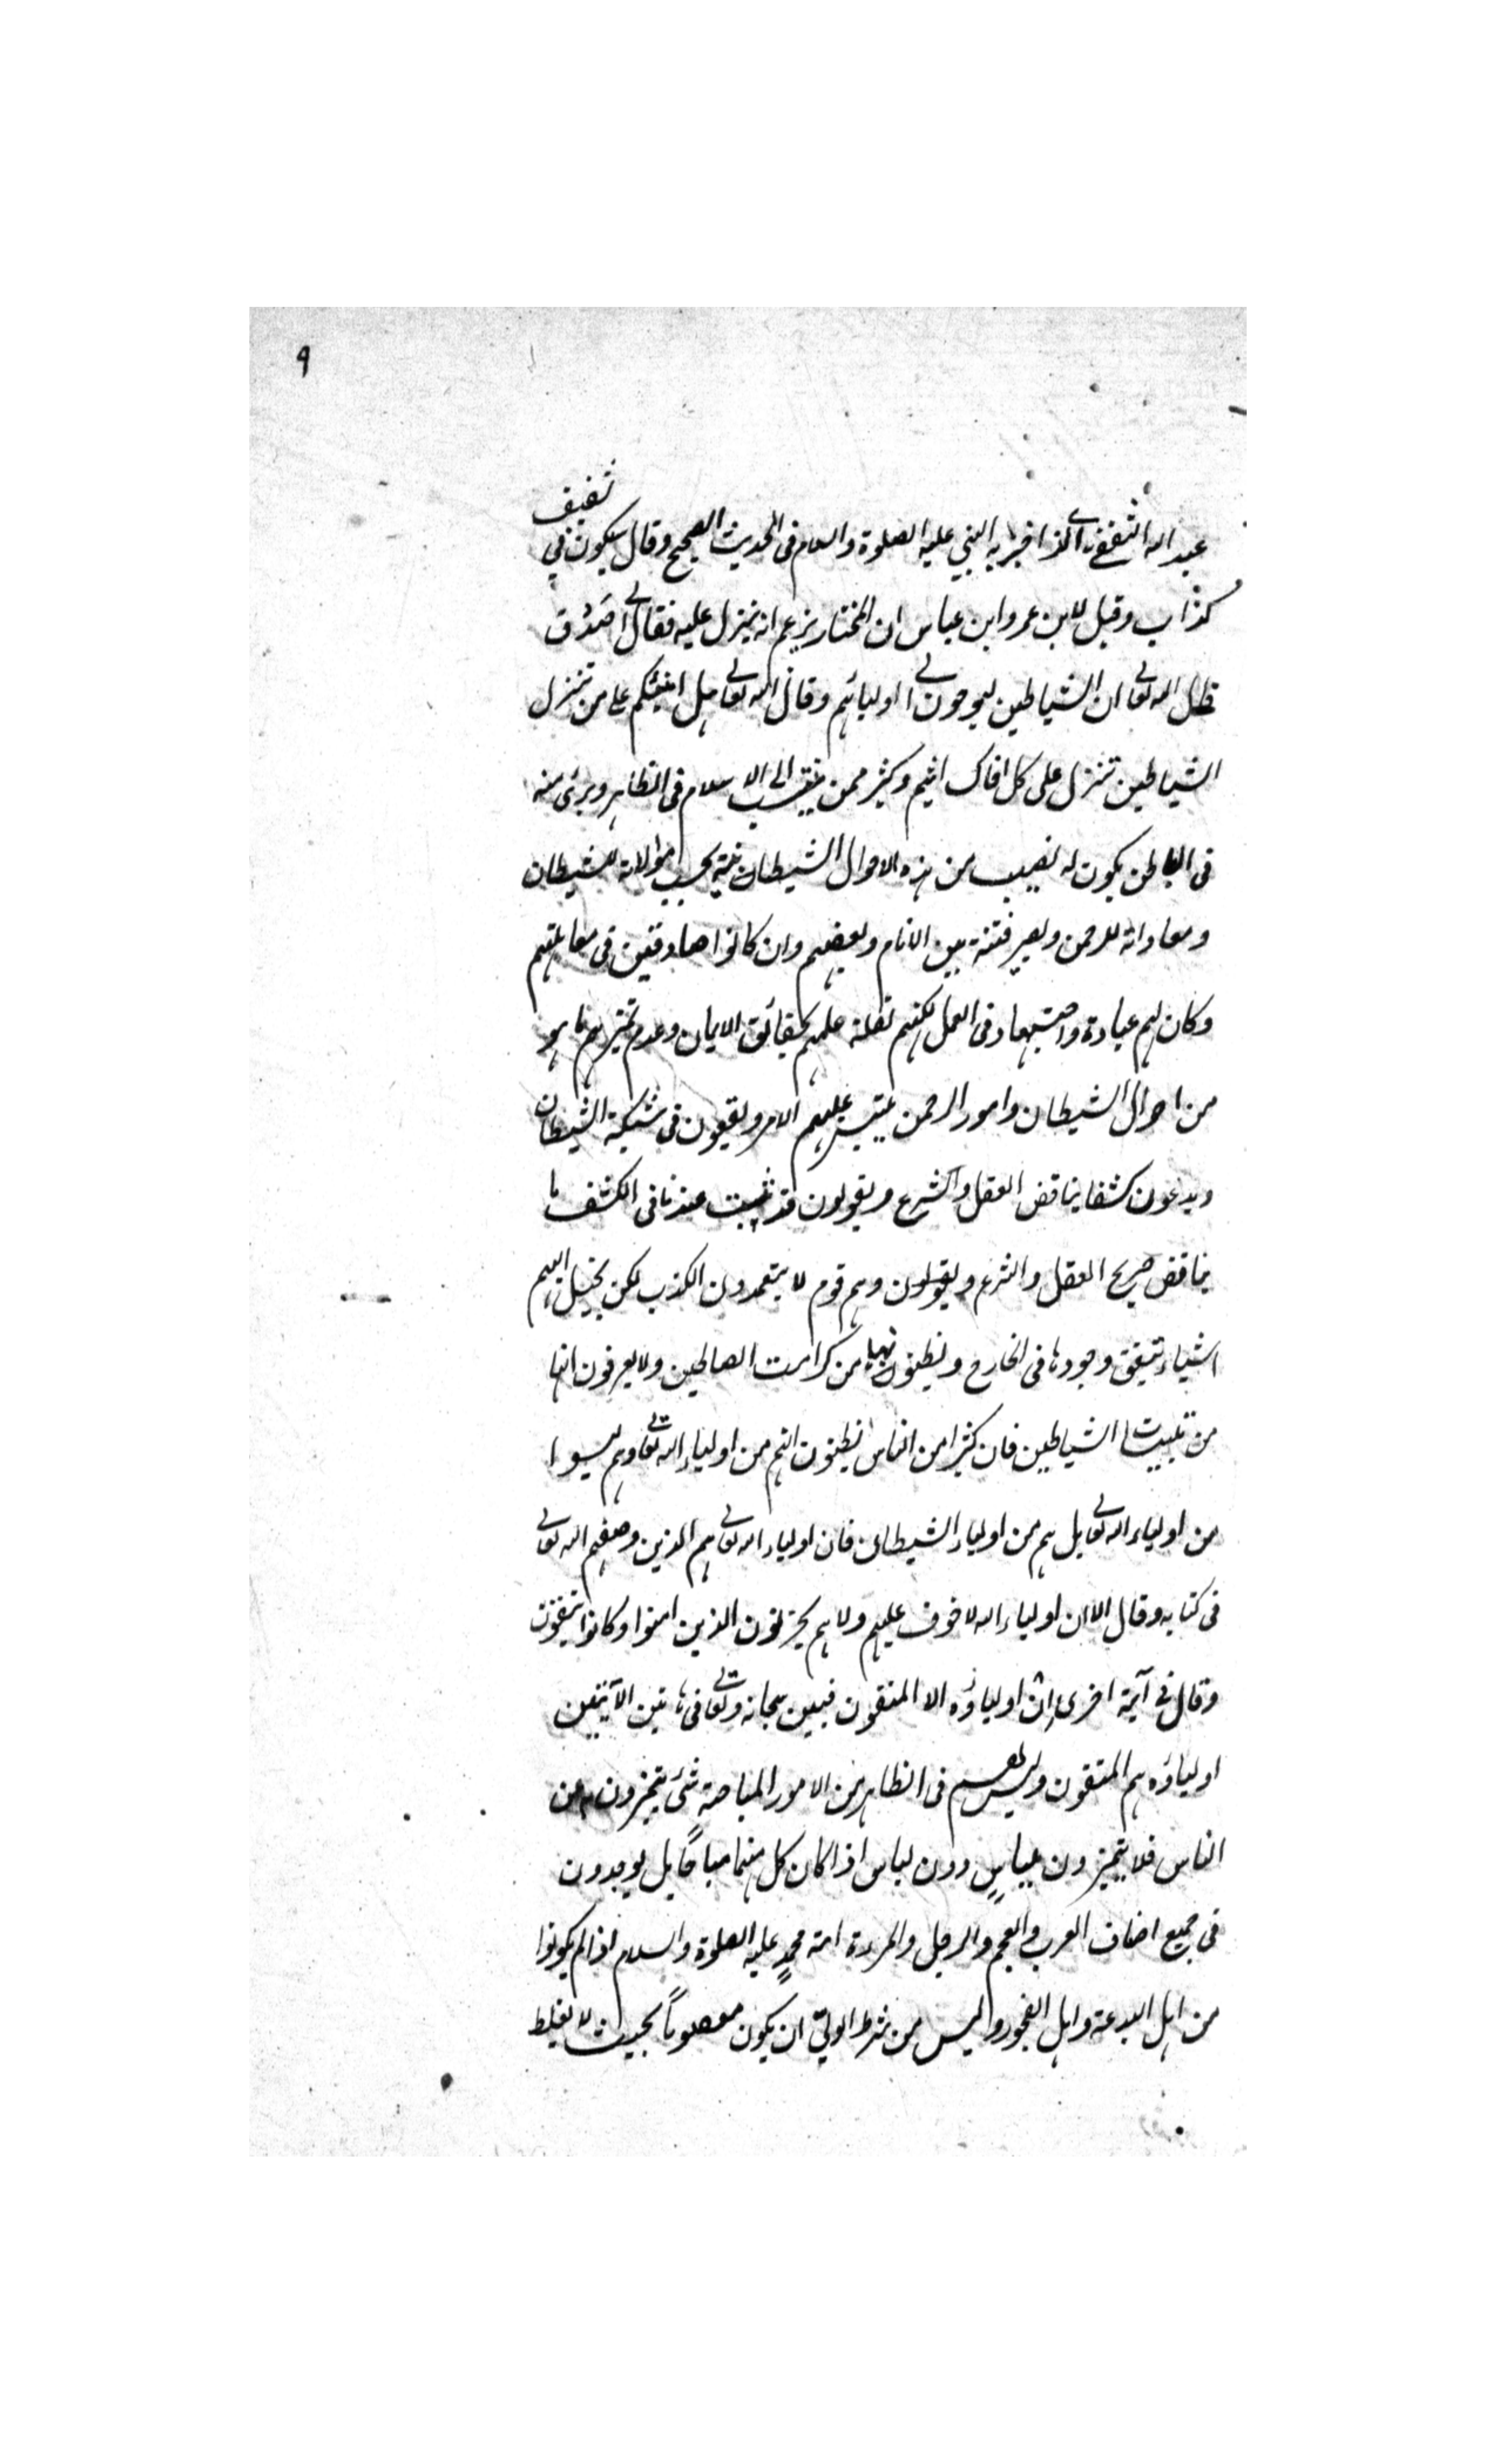 ٩
عبد الله الثقفى الذى اخبر به النبي عليه الصلوة والسلام فى الحديث الصحيح وقال سيكون في ثقيف
كذاب وقيل لابن عمر وابن عباس ان المختار يزعم انه ينزل عليه فقال صدق
قال الله تعالى ان الشياطين ليوحون الى اوليائهم وقال الله تعالى هل انبئكم على من تنزل
الشياطين تنزل على كل افاك اثيم وكثير ممن ينتسب الى الاسلام فى الظاهر وبرئ منه
فى الباطن يكون له نصيب من هذه الاحوال الشيطانية بحسب موالاته للشيطان
ومعاداته للرحمن ويصير فتنة بين الانام وبعضهم وان كانوا صادقين فى معاملتهم
وكان لهم عبادة واجتهاد فى العمل لكنهم لقلة علمهم بحقائق الايمان وعدم تميزهم ما هو
من احوال الشيطان وامور الرحمن يلتبس عليهم الامر ويقعون فى شبكة الشيطان
ويدعون كشفا يناقض العقل والشرع ويقولون قد ثبت عندنا فى الكشف ما
يناقض صريح العقل والشرع ويقولون وهم قوم لا يتعمدون الكذب لكن يخيل اليهم
اشياء تتيقن وجودها فى الخارج ويظنون انها من كرامت الصالحين ولا يعرفون انها
من تلبيسات الشياطين فان كثيرا من الناس يظنون انهم من اولياء الله تعالى وهم ليسوا
من اولياء الله تعالى بل هم من اولياء الشيطان فان اولياء الله تعالى هم الذين وصفهم الله تعالى
فى كتابه وقال الا ان اولياء الله لا خوف عليهم ولا هم يحزنون الذين امنوا وكانوا يتقون
وقال فى آية اخرى ان اولياؤه الا المتقون فبين سبحانه وتعالى فى هاتين الآيتين
اولياؤه هم المتقون وليس لهم فى الظاهر من الامور المباحة شئ يتميزون به عن
الناس فلا يتميزون بلباسٍ دون لباس اذا كان كل منهما مباحًا بل يوجدون
فى جميع اصناف العرب والعجم والرجل والمرءة امة محمدٍ عليه الصلوة والسلام اذا لم يكونوا
من اهل البدعة واهل الفجور وليس من شرط الولي ان يكون معصومًا بحيث لا يغلط